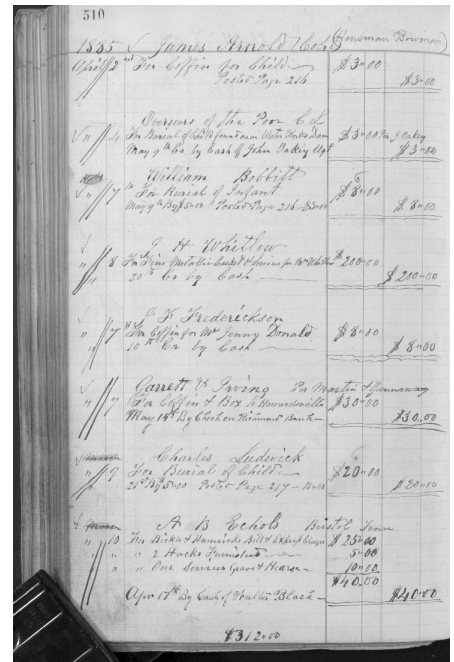 510
1885 James Arnold Cold (Housman Bowman)
April 2nd For Coffin for Child $3.00
Posted Page 216 $3.00
Overseers of the Poor C L
" 4 For Burial of Child from near Water Works Dam $3.00 Per J Oakey
May 9th Cr by Cash of John Oakey Agt $3.00
William Bobbitt
" 7th For Burial of Infant $8.00
May 9th By $5.00 Posted Page 216 - $3.00 $8.00
J H Whitlow
" 8 For Fine Metallic Casket & Service for Mrs Whitlow $200.00
20th Cr by Cash $200.00
J F Frederickson
" 7th For Coffin for Mrs Jenny Donald $8.00
10th Cr by Cash $8.00
Garrett & Irving Per Martin &
" 7 For Coffin & Box to Edwardsville $30.00
May 14th By Check on Bank $30.00
Charles Ludwick
" 9 For Burial of Child $20.00
21st By 5.00 Posted Page 217 - 15.00 $20.00
A B Echols Bristol Tenn
" 10 For Bill & Express $25.00
" " 2 Hacks Furnished 5.00
" " Our Services Grave & Hearse 10.00
$40.00
Apr 17th By Cash of Walter Black $40.00
$312.00